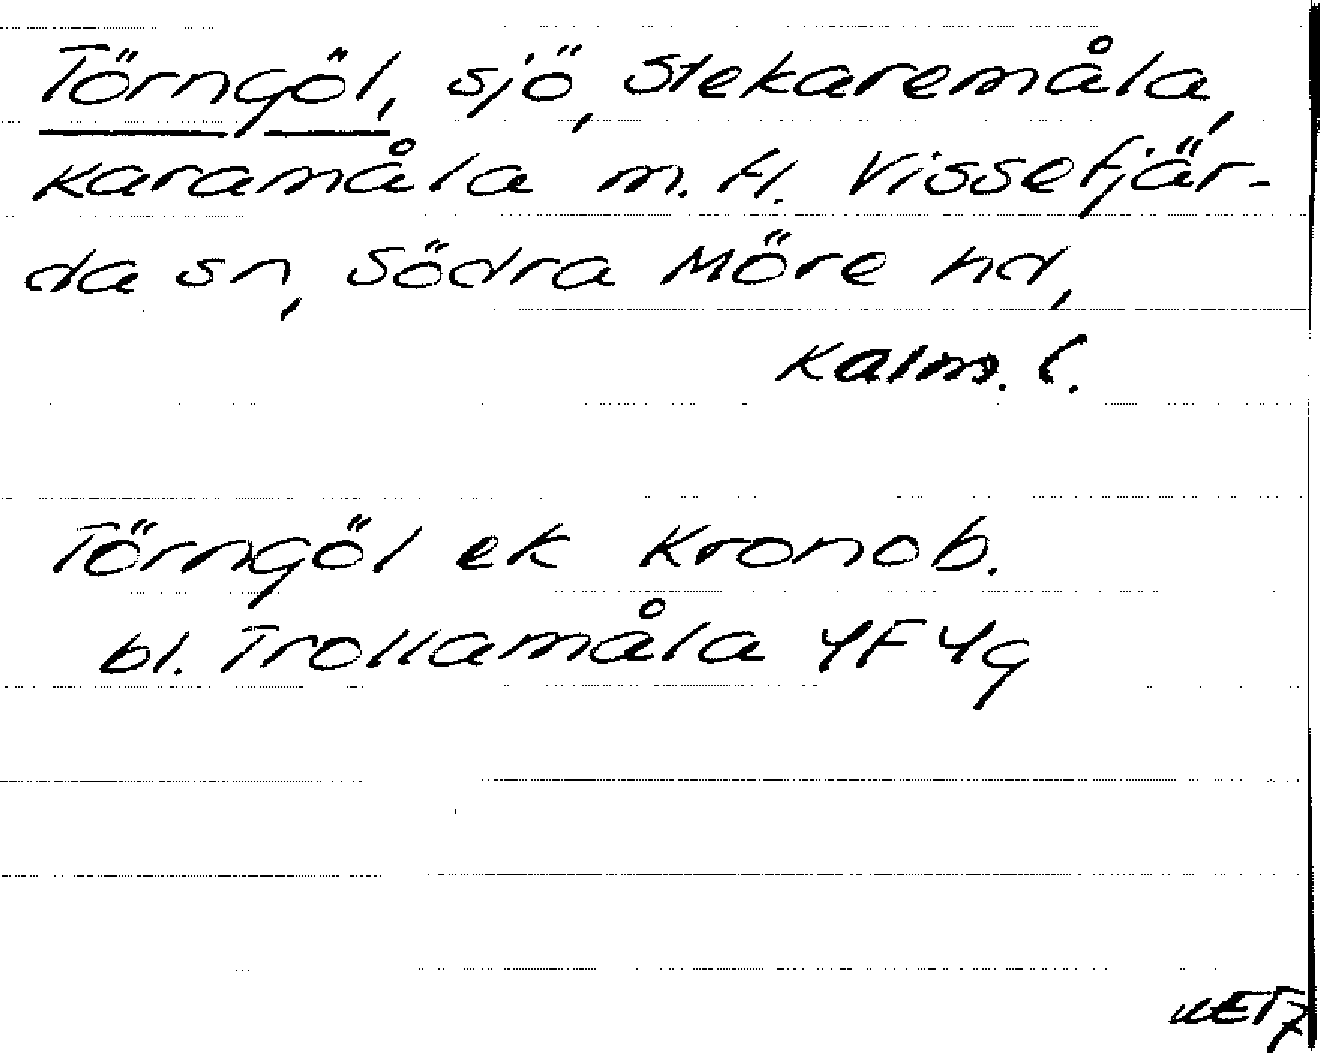 Törngöl, sjö, Stekaremåla,
Karamåla m.fl. Vissefjär-
da sn, Södra Möre hd,
Kalm. l.
Törngöl ek Kronob.
bl. Trollamåla 4F4g